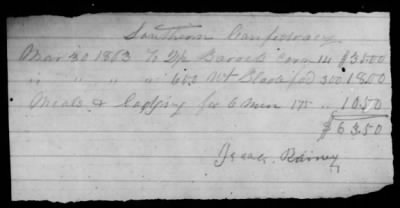 Southern Confederacy
Mar 30 1863 To 2½ Barrels corn 14 $35.00
" " " " 600 Wt Blade fod 300 18.00
Meals & Lodging for 6 men 175 " 10.50
$63.50
Isaac Rainey